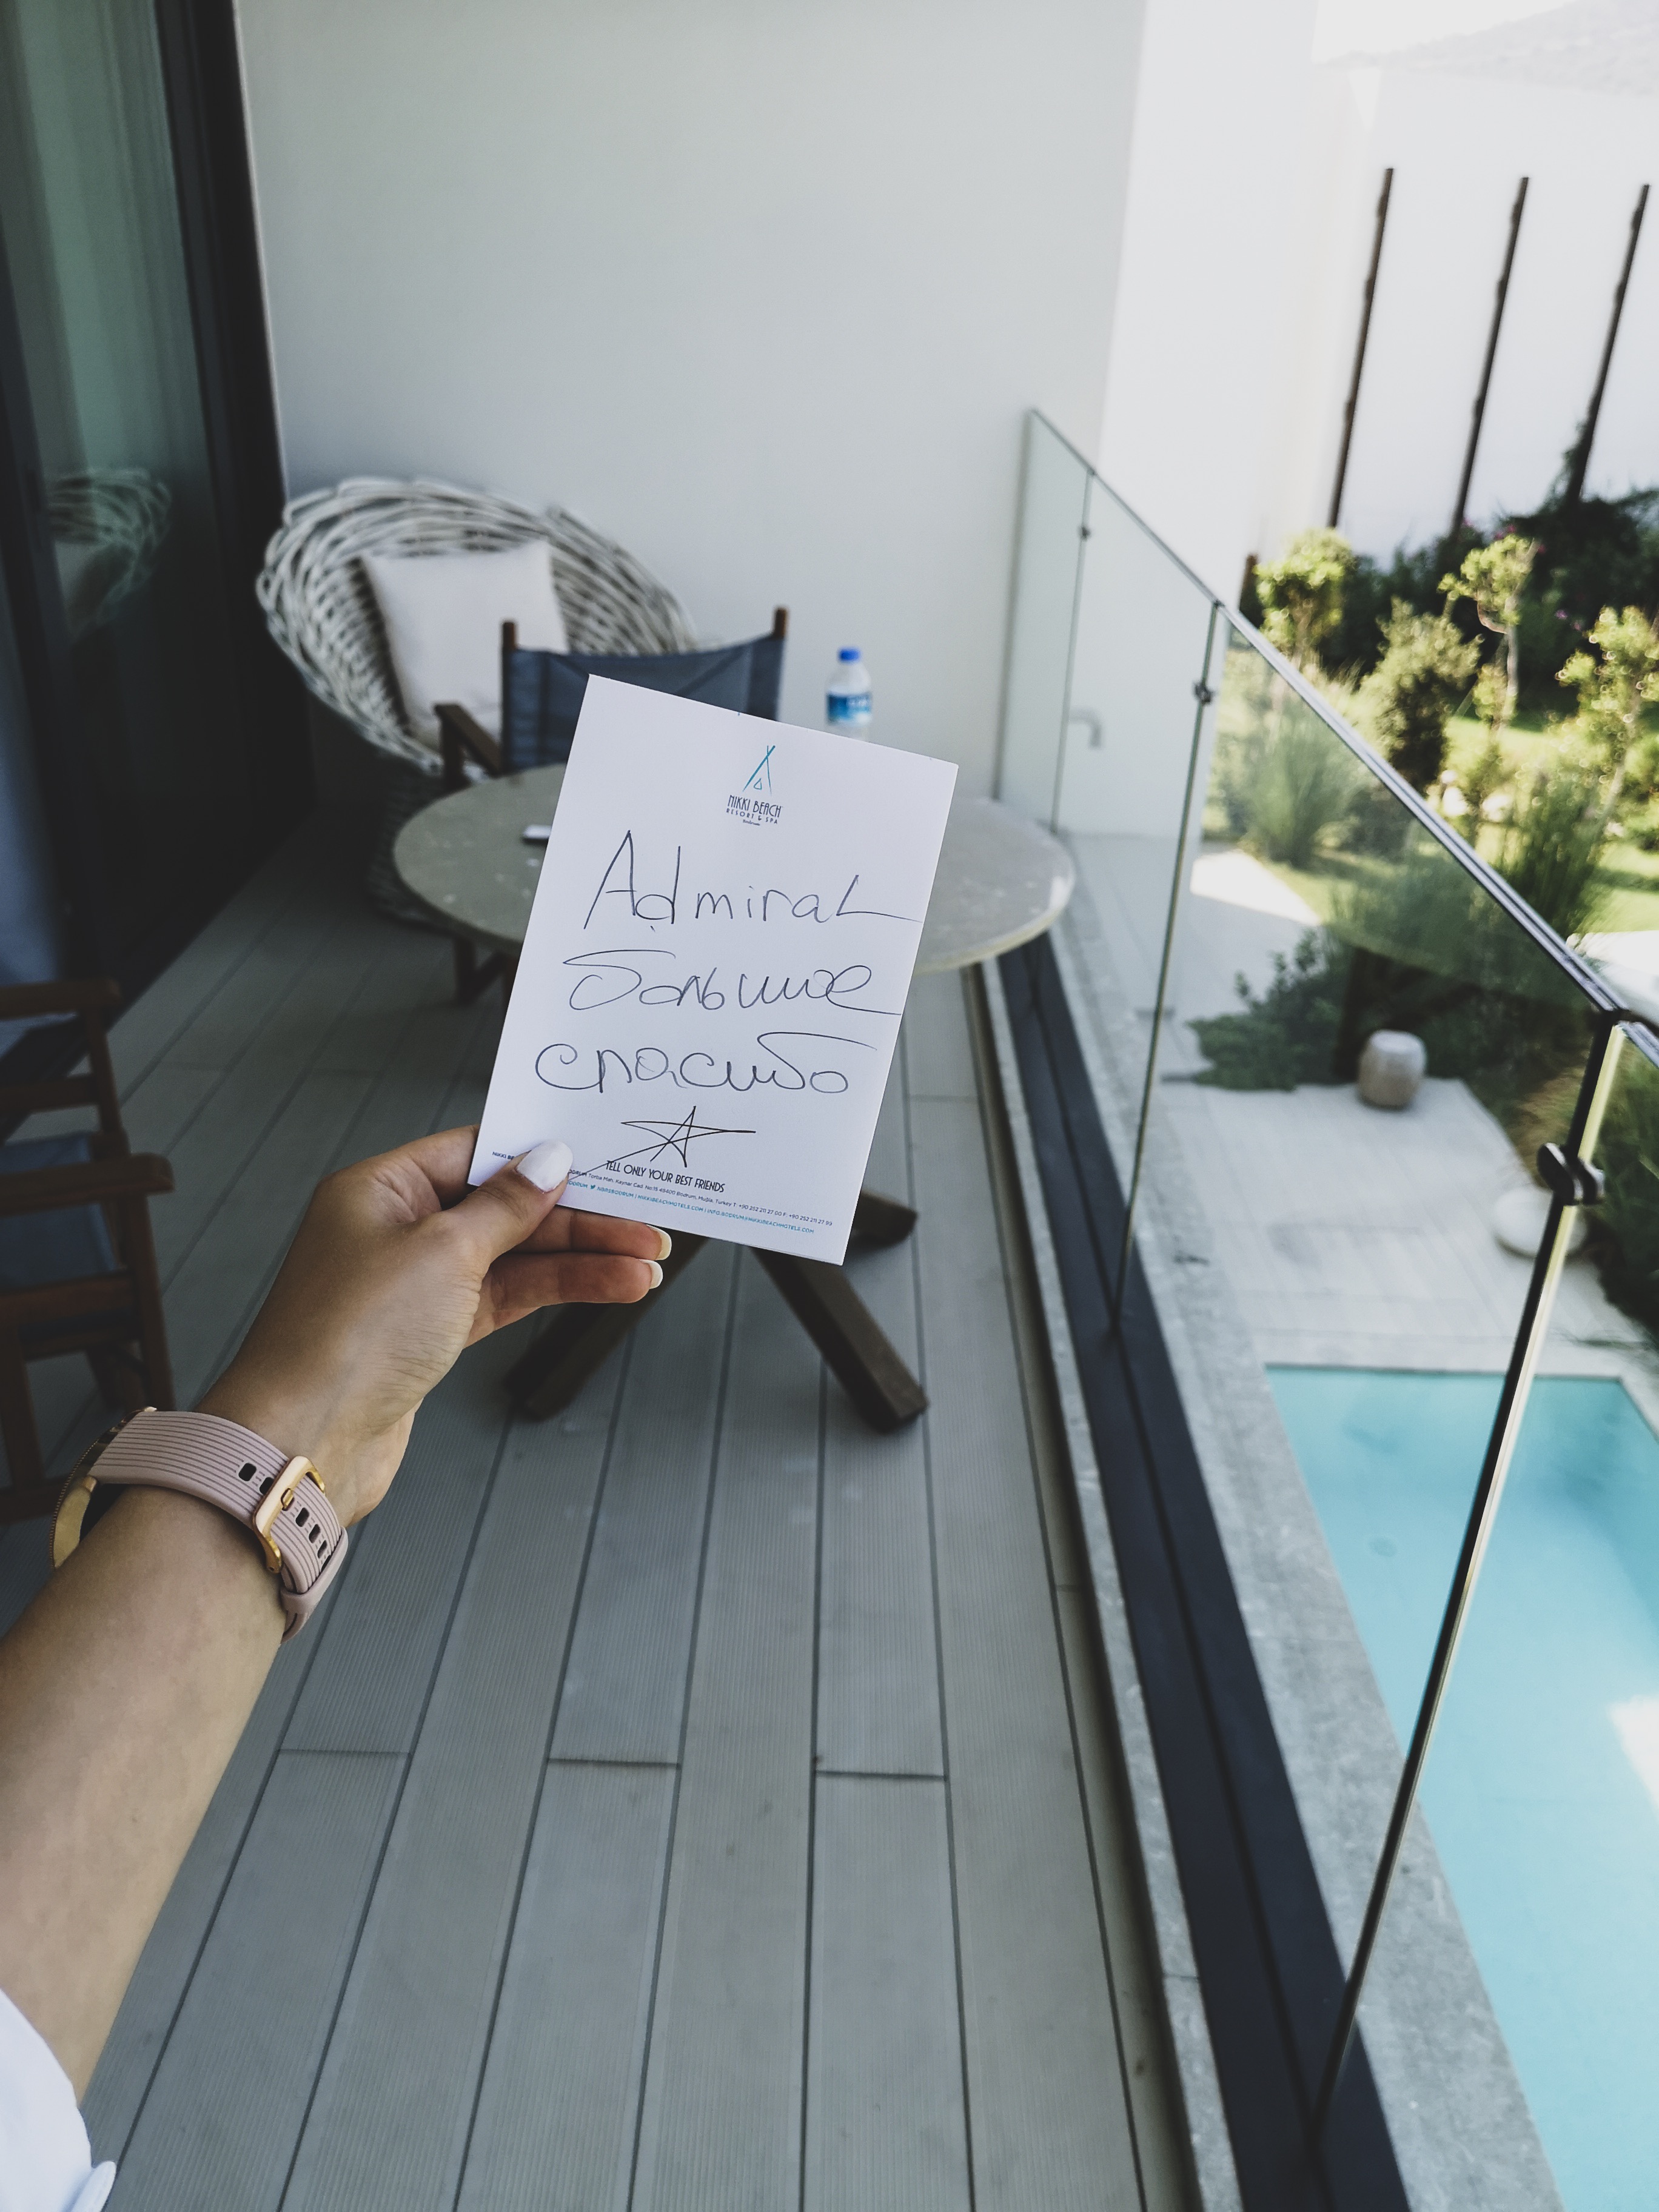 NIKKI BEACH
RESORT & SPA
Bodrum
Admiral
большое
спасибо
TELL ONLY YOUR BEST FRIENDS
Torba Mah. Kaynar Cad. No:15 48400 Bodrum, Muğla, Turkey T: +90 252 211 27 00 F: +90 252 211 27 99
NBRSBODRUM | NIKKIBEACHHOTELS.COM | INFO.BODRUM@NIKKIBEACHHOTELS.COM